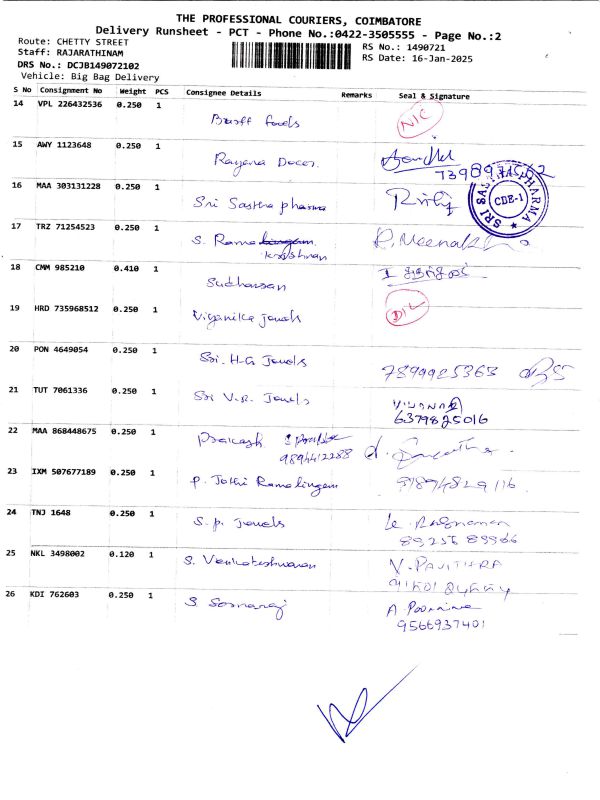 THE PROFESSIONAL COURIERS, COIMBATORE
Delivery Runsheet - PCT - Phone No.:0422-3505555 - Page No.:2
Route: CHETTY STREET
RS No.: 1490721
Staff: RAJARATHINAM
RS Date: 16-Jan-2025
DRS No.: DCJB149072102
Vehicle: Big Bag Delivery
S No Consignment No Weight PCS Consignee Details Remarks Seal & Signature
14 VPL 226432536 0.250 1 foods NIC
15 AWY 1123648 0.250 1 Rayana
16 MAA 303131228 0.250 1 Sri Sastha pharma
SRI SASTHA PHARMA
CDE-1
17 TRZ 71254523 0.250 1 S. Rama krishnan
18 CMM 985210 0.410 1 Sudharsan
19 HRD 735968512 0.250 1 Jewels D/L
20 PON 4649054 0.250 1 Sri. H.G Jewels 7899925363
21 TUT 7061336 0.250 1 Sri V.R. Jewels
6379825016
22 MAA 868448675 0.250 1 Prakash
9894412288
23 IXM 507677189 0.250 1 P. Jothi Ramalingam
24 TNJ 1648 0.250 1 S.P. Jewels
25 NKL 3498002 0.120 1 S. Venkateshwaran V. PAVITHRA
26 KDI 762603 0.250 1 S Somaraj A Poornima
9566937401